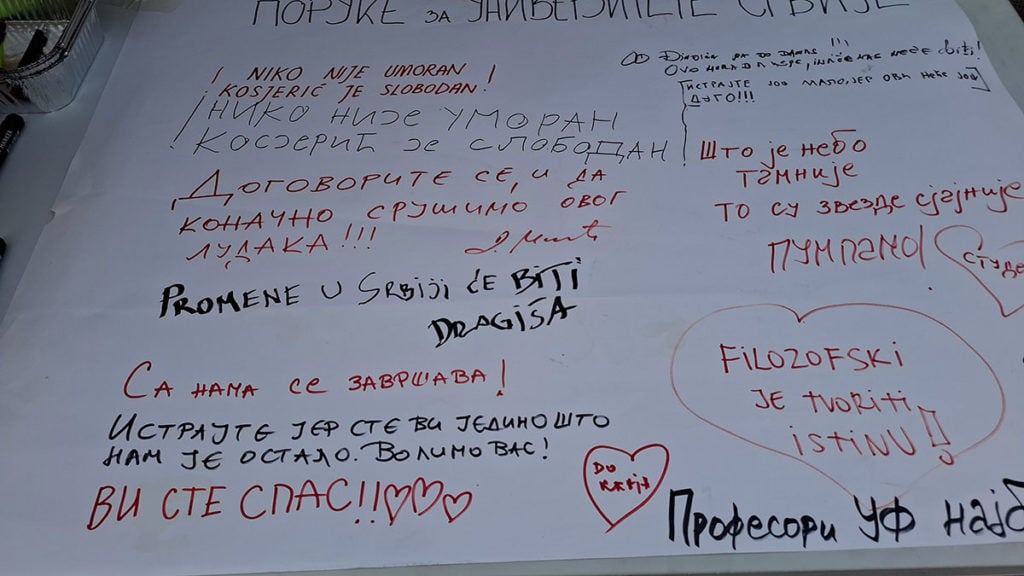 ПОРУКЕ ЗА УНИВЕРЗИТЕТЕ СРБИЈЕ
! NIKO NIJE UMORAN !
KOSJERIĆ JE SLOBODAN!
! НИКО НИЈЕ УМОРАН
КОСЈЕРИЋ ЈЕ СЛОБОДАН !
ДОГОВОРИТЕ СЕ, И ДА
КОНАЧНО СРУШИМО ОВОГ
ЛУДАКА!!!
PROMENE U SRBIJI ĆE BITI
DRAGIŠA
СА НАМА СЕ ЗАВРШАВА!
ИСТРАЈТЕ ЈЕР СТЕ ВИ ЈЕДИНО ШТО
НАМ ЈЕ ОСТАЛО. ВОЛИМО ВАС!
ВИ СТЕ СПАС!!
DO
KRAJA
OD DA DO DANAS !!!
OVO MORA NAS NEĆE BITI!
ИСТРАЈТЕ ЈОШ МАЛО, ЈЕР ОВИ НЕЋЕ ЈОШ
ДУГО!!!
ШТО ЈЕ НЕБО
ТАМНИЈЕ
ТО СУ ЗВЕЗДЕ СЈАЈНИЈЕ
ПУМПАМО!
СТУДЕ
FILOZOFSKI
JE TVORITI
ISTINU!!
Професори УФ најб